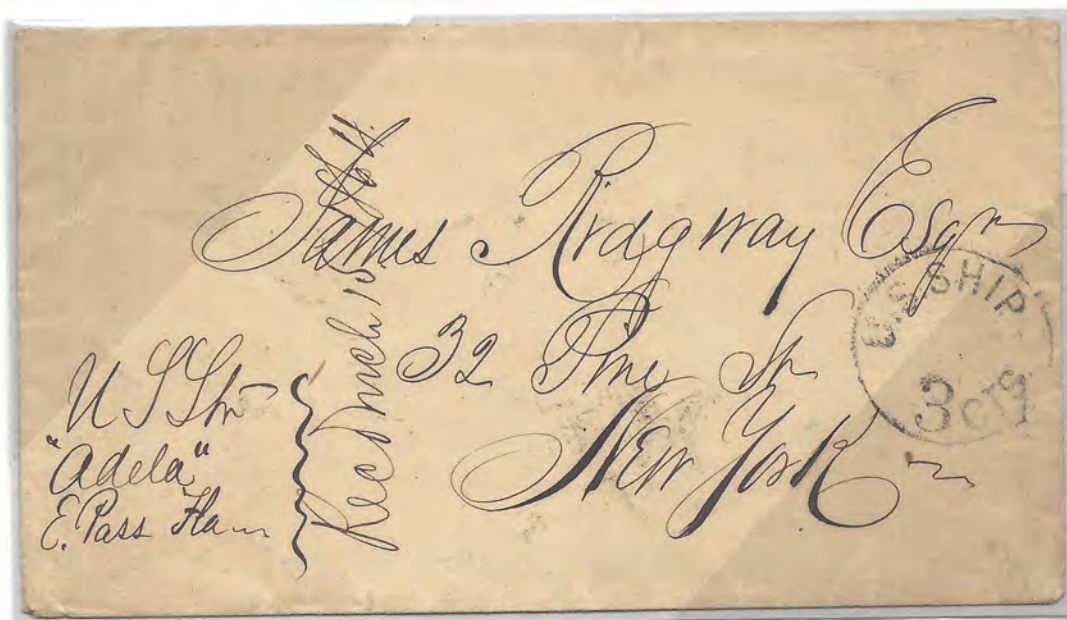 James Ridgway Esqr
32 Pine St
New York
U.S. SHIP
3 CTS
U S Str
"Adela"
E. Pass Fla
Recd Mch 15